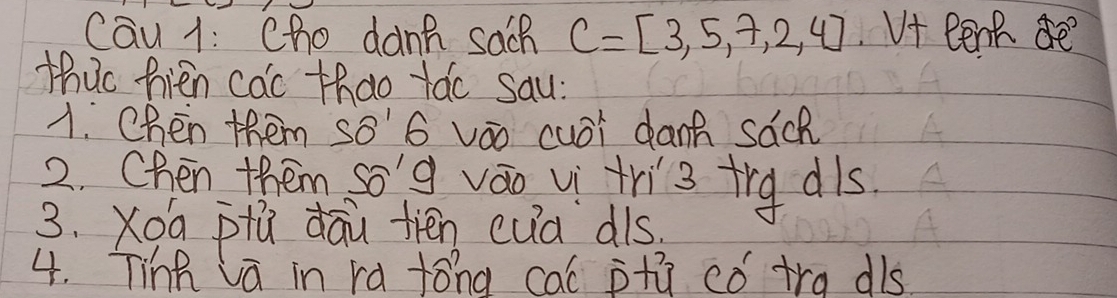 Câu 1: Cho danh sách C = [3,5,7,2,4]. Vt lệnh để
thực hiện các thao tác sau:
1. Chèn thêm số 6 vào cuối danh sách
2. Chèn thêm số 9 vào vị trí 3 trg d/s.
3. Xóa ptử đầu tiên của d/s.
4. Tính và in ra tổng các ptử có trg d/s